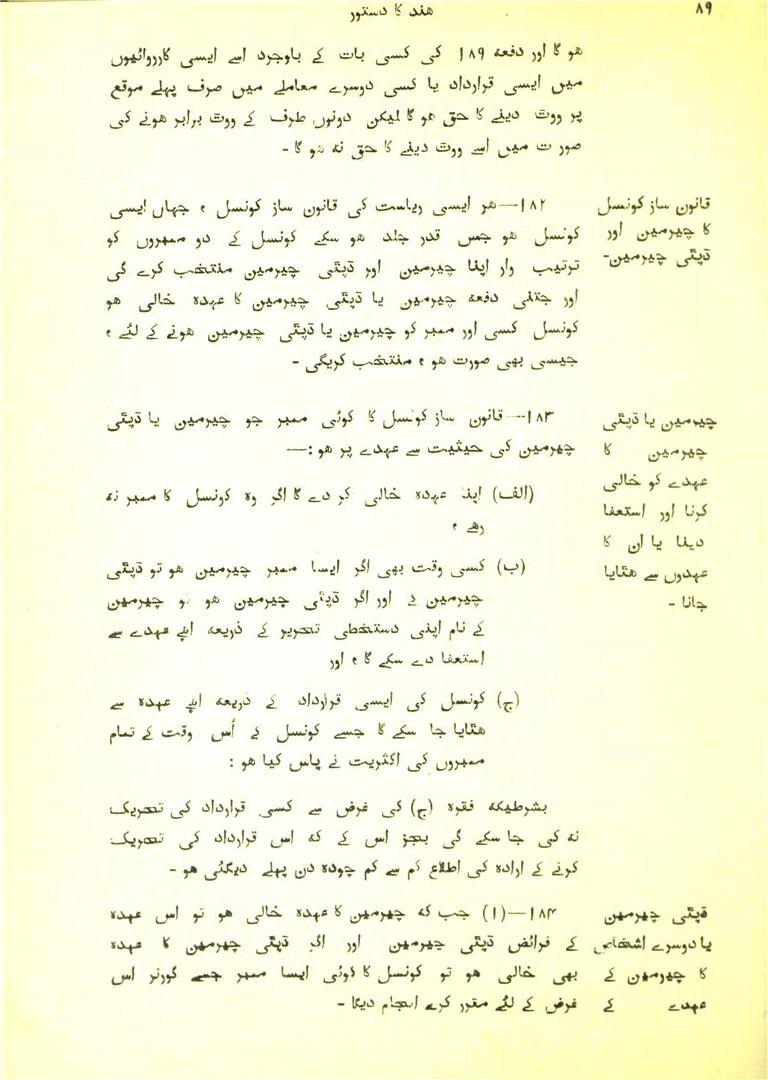 ۸۹
هند کا دستور
هو گا اور دفعه ۱۸۹ کی کسی بات کے باوجود اسے ایسی کارروائیوں
میں ایسی قرارداد یا کسی دوسرے معاملے میں صرف پہلے موقع
پر ووٹ دینے کا حق هو گا لیکن دونوں طرف کے ووٹ برابر هونے کی
صورت میں اسے ووٹ دینے کا حق نه هو گا -
قانون ساز کونسل
کا چیرمین اور
ڈپٹی چیرمین-
۱۸۲—هر ایسی ریاست کی قانون ساز کونسل ، جہاں ایسی
کونسل هو جس قدر جلد هو سکے کونسل کے دو ممبروں کو
ترتیب وار اپنا چیرمین اور ڈپٹی چیرمین منتخب کرے گی
اور جتنی دفعه چیرمین یا ڈپٹی چیرمین کا عہدہ خالی هو
کونسل کسی اور ممبر کو چیرمین یا ڈپٹی چیرمین هونے کے لئے ،
جیسی بھی صورت هو ، منتخب کریگی -
چیرمین یا ڈپٹی
چیرمین کا
عہدے کو خالی
کرنا اور استعفا
دینا یا ان کا
عہدوں سے هٹایا
جانا -
۱۸۳—قانون ساز کونسل کا کوئی ممبر جو چیرمین یا ڈپٹی
چیرمین کی حیثیت سے عہدے پر هو :—
(الف) اپنا عہدہ خالی کر دے گا اگر وہ کونسل کا ممبر نه
رهے ،
(ب) کسی وقت بھی اگر ایسا ممبر چیرمین هو تو ڈپٹی
چیرمین کے اور اگر ڈپٹی چیرمین هو تو چیرمین
کے نام اپنی دستخطی تحریر کے ذریعه اپنے عہدے سے
استعفا دے سکے گا ، اور
(ج) کونسل کی ایسی قرارداد کے ذریعه اپنے عہدہ سے
هٹایا جا سکے گا جسے کونسل کے اُس وقت کے تمام
ممبروں کی اکثریت نے پاس کیا هو :
بشرطیکه فقرہ (ج) کی غرض سے کسی قرارداد کی تحریک
نه کی جا سکے گی بجز اس کے که اس قرارداد کی تحریک
کرنے کے ارادہ کی اطلاع کم سے کم چودہ دن پہلے دیگئی هو -
ڈپٹی چیرمین
یا دوسرے اشخاص
کا چیرمین کے
عہدے کے
۱۸۴—(۱) جب که چیرمین کا عہدہ خالی هو تو اس عہدہ
کے فرائض ڈپٹی چیرمین اور اگر ڈپٹی چیرمین کا عہدہ
بھی خالی هو تو کونسل کا کوئی ایسا ممبر جسے گورنر اس
غرض کے لئے مقرر کرے انجام دیگا -